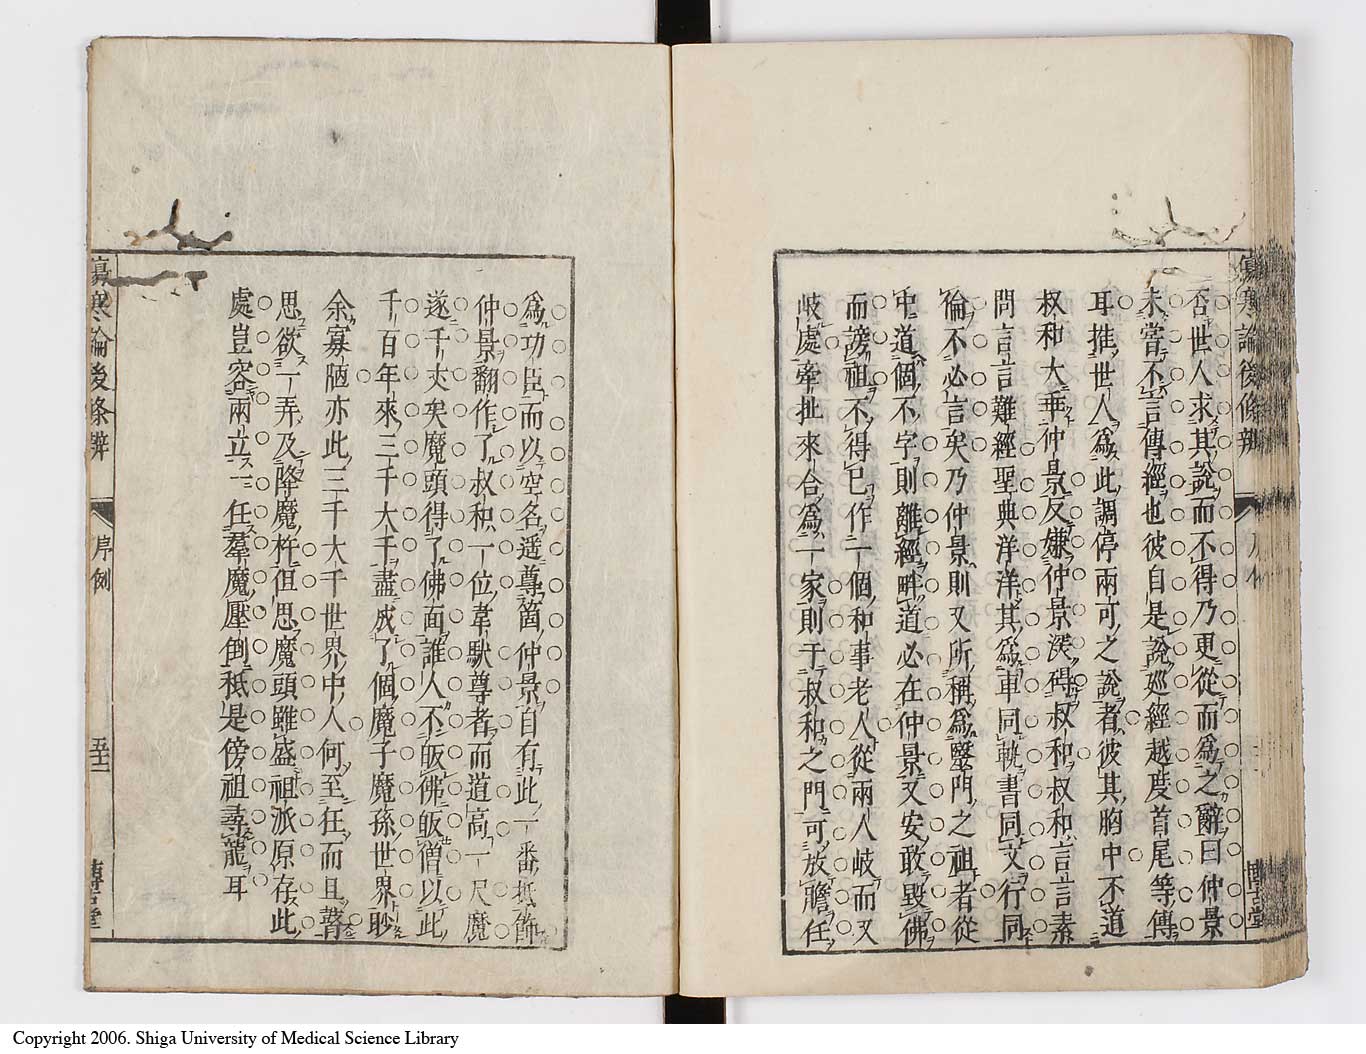 傷寒論後條辨
序例
博古堂
否世人求其說而不得乃更從而爲之辭曰仲景
未嘗不言傳經也彼自是說廵經越度首尾等傳
耳推世人爲此調停兩可之說者彼其胸中不道
叔和大乖仲景反嫌仲景深碍叔和叔和言言素
問言言難經聖典洋洋其爲車同軌書同文行同
倫不必言矣乃仲景則又所稱爲醫門之祖者從
中道個不字則離經畔道必在仲景又安敢毀佛
而謗祖不得已作一個和事老人從兩人岐而又
岐處牽扯來合爲一家則于叔和之門可放膽任
爲功臣而以空名遥尊箇仲景自有此一番抵飾
仲景翻作了叔和一位韋馱尊者而道高一尺魔
遂千丈矣魔頭得了佛面誰人不皈佛皈僧以此
千百年來三千大千盡成了個魔子魔孫世界眇
余寡陋亦此三千大千世界中人何至狂而且瞽
思欲一弄及降魔杵但思魔頭雖盛祖派原存此
處豈容兩立一任羣魔壓倒秖是傍祖尋龍耳
傷寒論後條辨
序例
五十二
博古堂
Copyright 2006. Shiga University of Medical Science Library